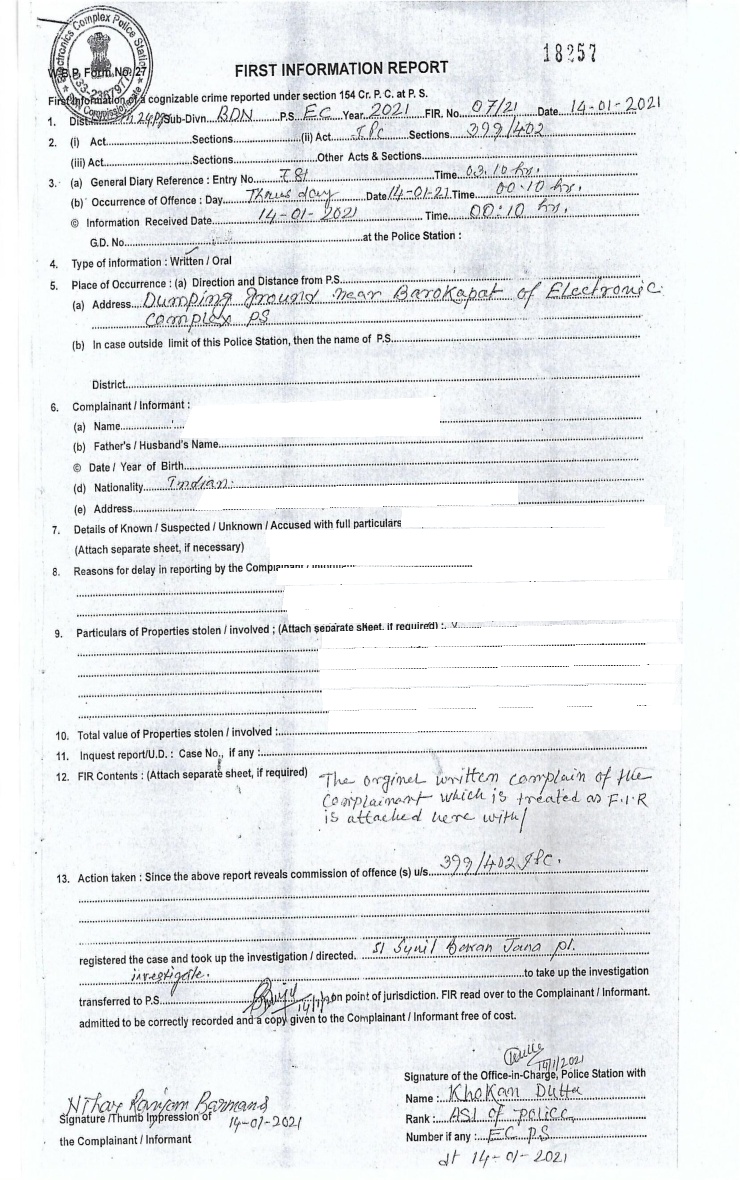 Electronics Complex Police Station
18257
W.B.P. Form No. 27
FIRST INFORMATION REPORT
First Information of a cognizable crime reported under section 154 Cr. P. C. at P. S.
1. Dist. 24 Pgs Sub-Divn. BDN P.S. EC Year. 2021 FIR. No. 07/21 Date 14-01-2021
2. (i) Act Sections (ii) Act IPC Sections 399/402
(iii) Act Sections Other Acts & Sections
3. (a) General Diary Reference : Entry No. 781 Time 03.10 hr.
(b) Occurrence of Offence : Day Thursday Date 14-01-21 Time 00.10 hr.
© Information Received Date 14-01-2021 Time 00:10 hr.
G.D. No. at the Police Station :
4. Type of information : Written / Oral
5. Place of Occurrence : (a) Direction and Distance from P.S.
(a) Address Dumping ground near Barokapat of Electronic
Complex PS
(b) In case outside limit of this Police Station, then the name of P.S.
District
6. Complainant / Informant :
(a) Name
(b) Father's / Husband's Name
© Date / Year of Birth
(d) Nationality Indian.
(e) Address
7. Details of Known / Suspected / Unknown / Accused with full particulars
(Attach separate sheet, if necessary)
8. Reasons for delay in reporting by the
9. Particulars of Properties stolen / involved ; (Attach separate sheet, if required) :
10. Total value of Properties stolen / involved :
11. Inquest report/U.D. : Case No., if any :
12. FIR Contents : (Attach separate sheet, if required) The orginel written complain of the
Complainant which is treated as F.I.R
is attached here with/
13. Action taken : Since the above report reveals commission of offence (s) u/s. 399/402 IPC.
registered the case and took up the investigation / directed. SI Sunil Baran Jana pl.
investigate. to take up the investigation
transferred to P.S. on point of jurisdiction. FIR read over to the Complainant / Informant.
admitted to be correctly recorded and a copy given to the Complainant / Informant free of cost.
14/1/2021
Signature of the Office-in-Charge, Police Station with
Name : Khokan Dutta
Nihar Ranjan Barman
Signature /Thumb Impression of 14-01-2021
Rank : ASI of police
the Complainant / Informant
Number if any : EC PS
dt 14-01-2021